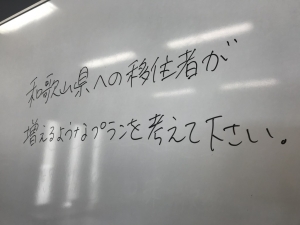 和歌山県への移住者が
増えるようなプランを考えて下さい。